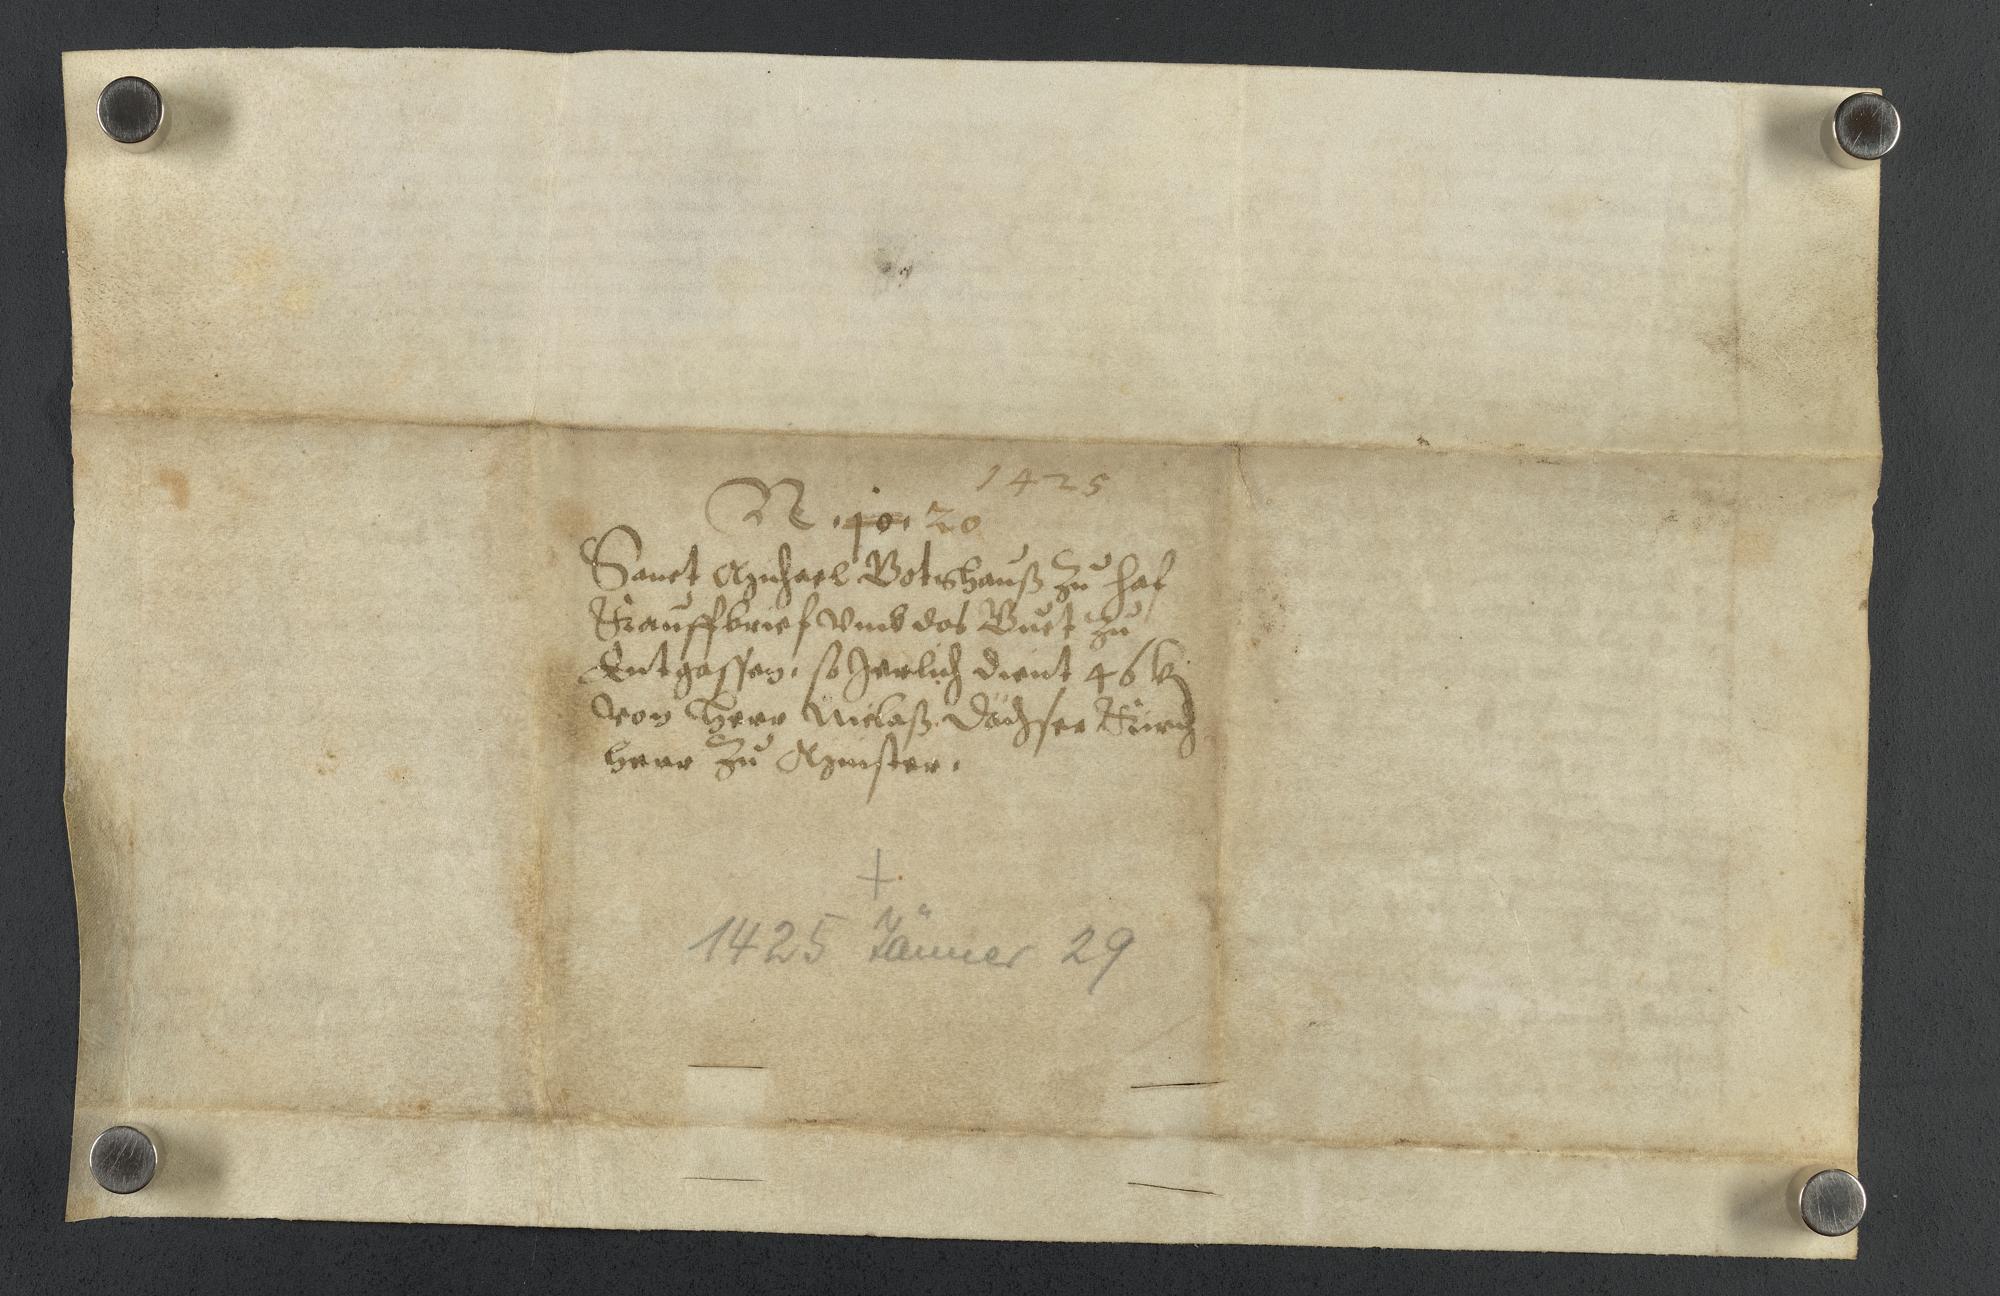 1425
N. 10. 20
Sanct Michael Gotshauß Zu Haf
Kauffbrief vmb das Guet Zu
Entgassen. so Jerlich dient 46
von Herr Niclaß Dächser Kirch
herr Zu Minster.
+
1425 Jänner 29